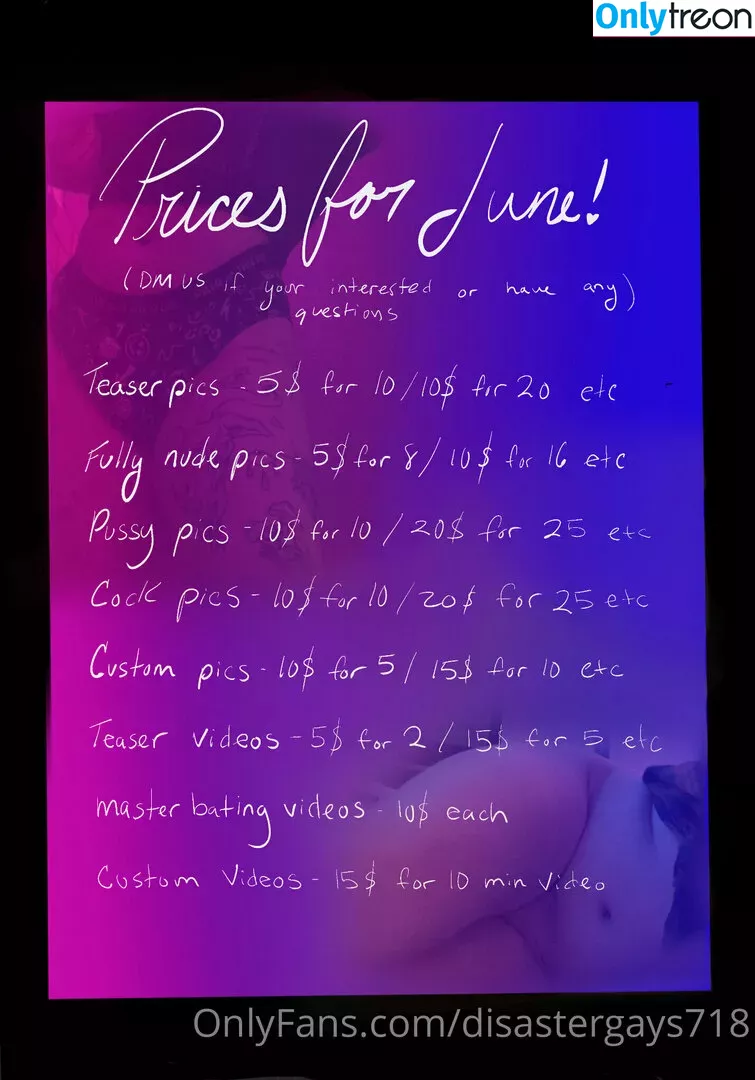 Onlytreon
Prices for June!
(DM us if your interested or have any)
questions
Teaser pics - 5$ for 10/10$ for 20 etc
Fully nude pics - 5$ for 8/10$ for 16 etc
Pussy pics - 10$ for 10/20$ for 25 etc
Cock pics - 10$ for 10/20$ for 25 etc
Custom pics - 10$ for 5/15$ for 10 etc
Teaser videos - 5$ for 2/15$ for 5 etc
master bating videos - 10$ each
Custom Videos - 15$ for 10 min video
OnlyFans.com/disastergays718